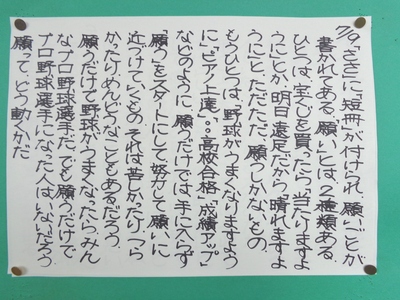 7/9、ささに、短冊が付けられ、願いごとが
書かれてある。「願い」とは2種類ある。
ひとつは、宝くじを買ったら「当たりますよ
うに」とか、明日、遠足だから「晴れますよ
うに」と、ただただ、願うしかないもの
もうひとつは、「野球がうまくなりますよう
に」「ピアノ上達」「○○高校合格」「成績アップ」
などのように、願うだけでは手に入らず
「願う」をスタートにして努力して、願いに
近づけていくもの それは苦しかったり、つら
かったり、めんどうなこともあるだろう。
願うだけで野球がうまくなったら、みん
なプロ野球選手だ。でも願うだけで
プロ野球選手になった人はいないだろう。
願って、どう動くかだ